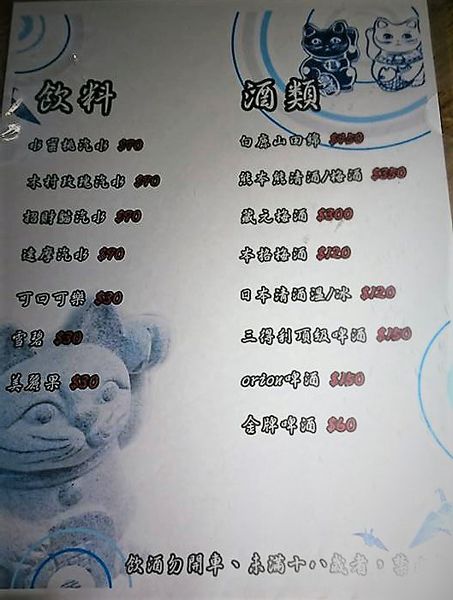 飲料
水蜜桃汽水 $90
木村玫瑰汽水 $90
招財貓汽水 $90
達摩汽水 $90
可口可樂 $30
雪碧 $30
美麗果 $30
酒類
白鹿山田錦 $450
熊本熊清酒/梅酒 $350
藏元梅酒 $300
本格梅酒 $120
日本清酒溫/冰 $120
三得利頂級啤酒 $150
orion啤酒 $150
金牌啤酒 $60
飲酒勿開車、未滿十八歲者,禁